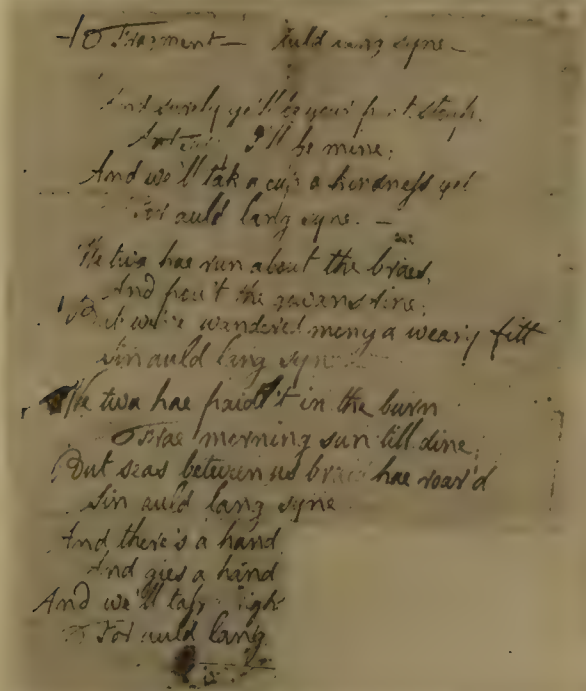 Fragment — Auld lang syne —
And surely ye'll be your pint stoup,
I'll be mine;
And we'll tak a cup o kindness yet
For auld lang syne. —
We twa hae run about the braes,
And pou't the gowans fine;
But we've wandered mony a weary fitt
Sin auld lang syne
We twa hae paidl't in the burn
Frae morning sun till dine;
But seas between us braid hae roar'd
Sin auld lang syne
And there's a hand
And gies a hand
And we'll tak
For auld lang